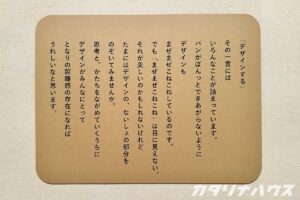 「デザインする」
その一言には
いろんなことが詰まっています。
パンがぽんっとできあがらないように
デザインも
まぜまぜこねこねしているのです。
でも「まぜまぜこねこね」は目に見えない。
それが美しいのかもしれないけれど
たまにはデザインの、ないしょの部分を
のぞいてみませんか。
思考と、かたちをながめていくうちに
デザインがみんなにとって
となりの距離感の存在になれば
うれしいなと思います。
カタリナハウス